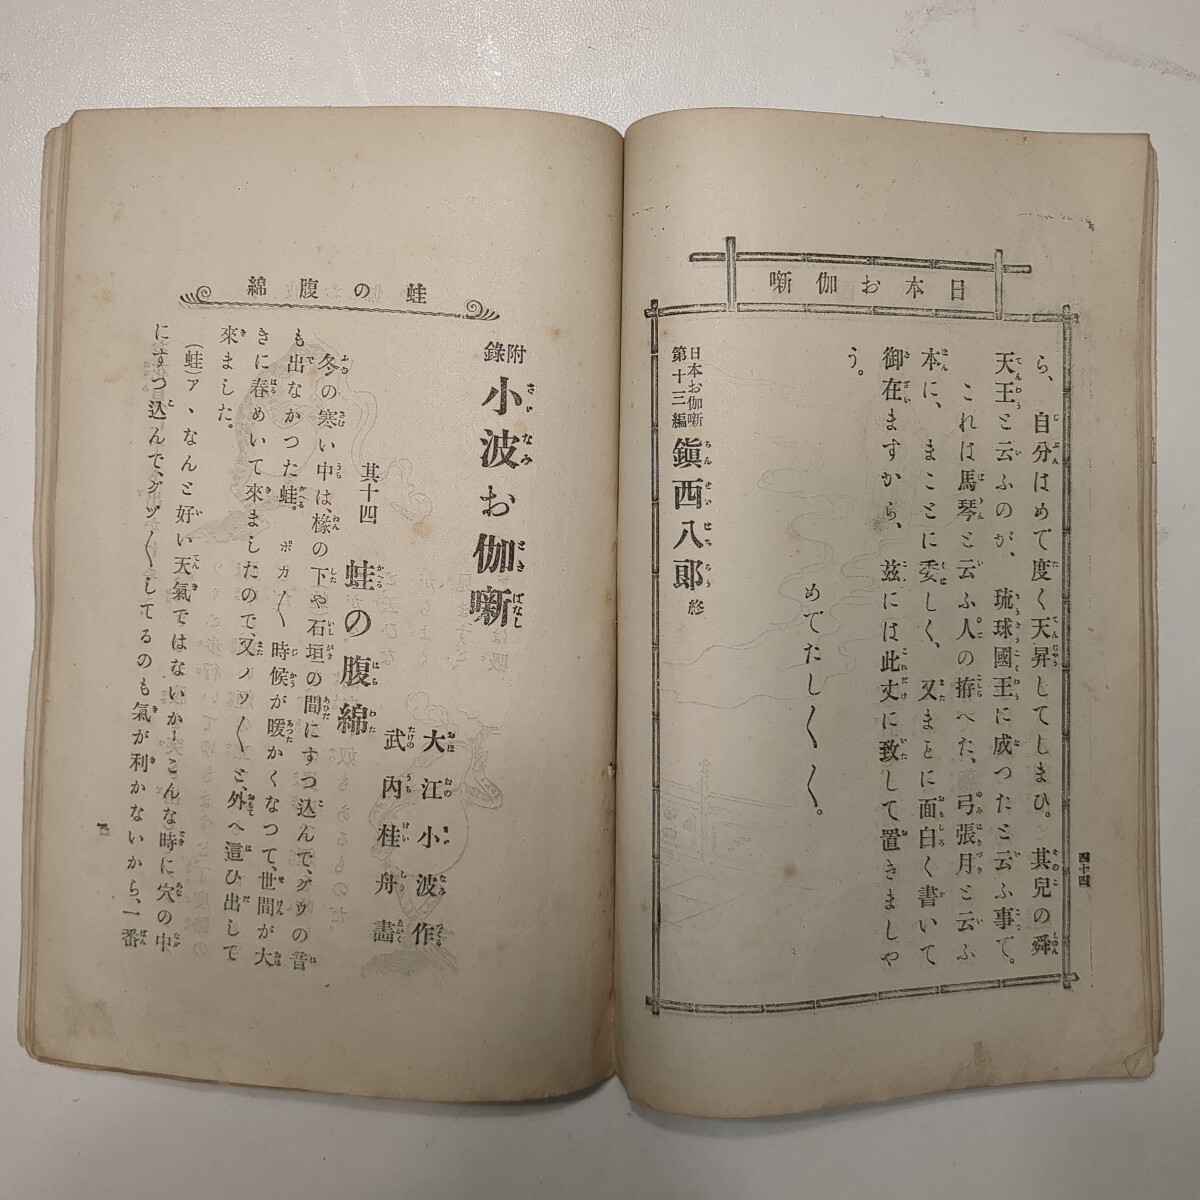 日本お伽噺
ら、自分はめで度く天昇してしまひ。其兒の舜
天王と云ふのが、琉球國王に成つたと云ふ事で。
これは馬琴と云ふ人の拵へた、弓張月と云ふ
本に、まことに委しく、又まことに面白く書いて
御在ますから、茲には此丈に致して置きましや
う。
めでたし〱〱。
日本お伽噺
第十三編
鎭西八郎
終
四十四
蛙の腹綿
附錄
小波お伽噺
大江小波作
武內桂舟畵
其十四
蛙の腹綿
冬の寒い中は、椽の下や石垣の間にすつ込んで、グウの音
も出なかつた蛙。ポカ〱時候が暖かくなつて、世間が大
きに春めいて來ましたので、又ノソ〱と、外へ這ひ出して
來ました。
(蛙)ア、なんと好い天氣ではないか―こんな時に穴の中
にすつ込んで、グツ〱してるのも氣が利かないから、一番